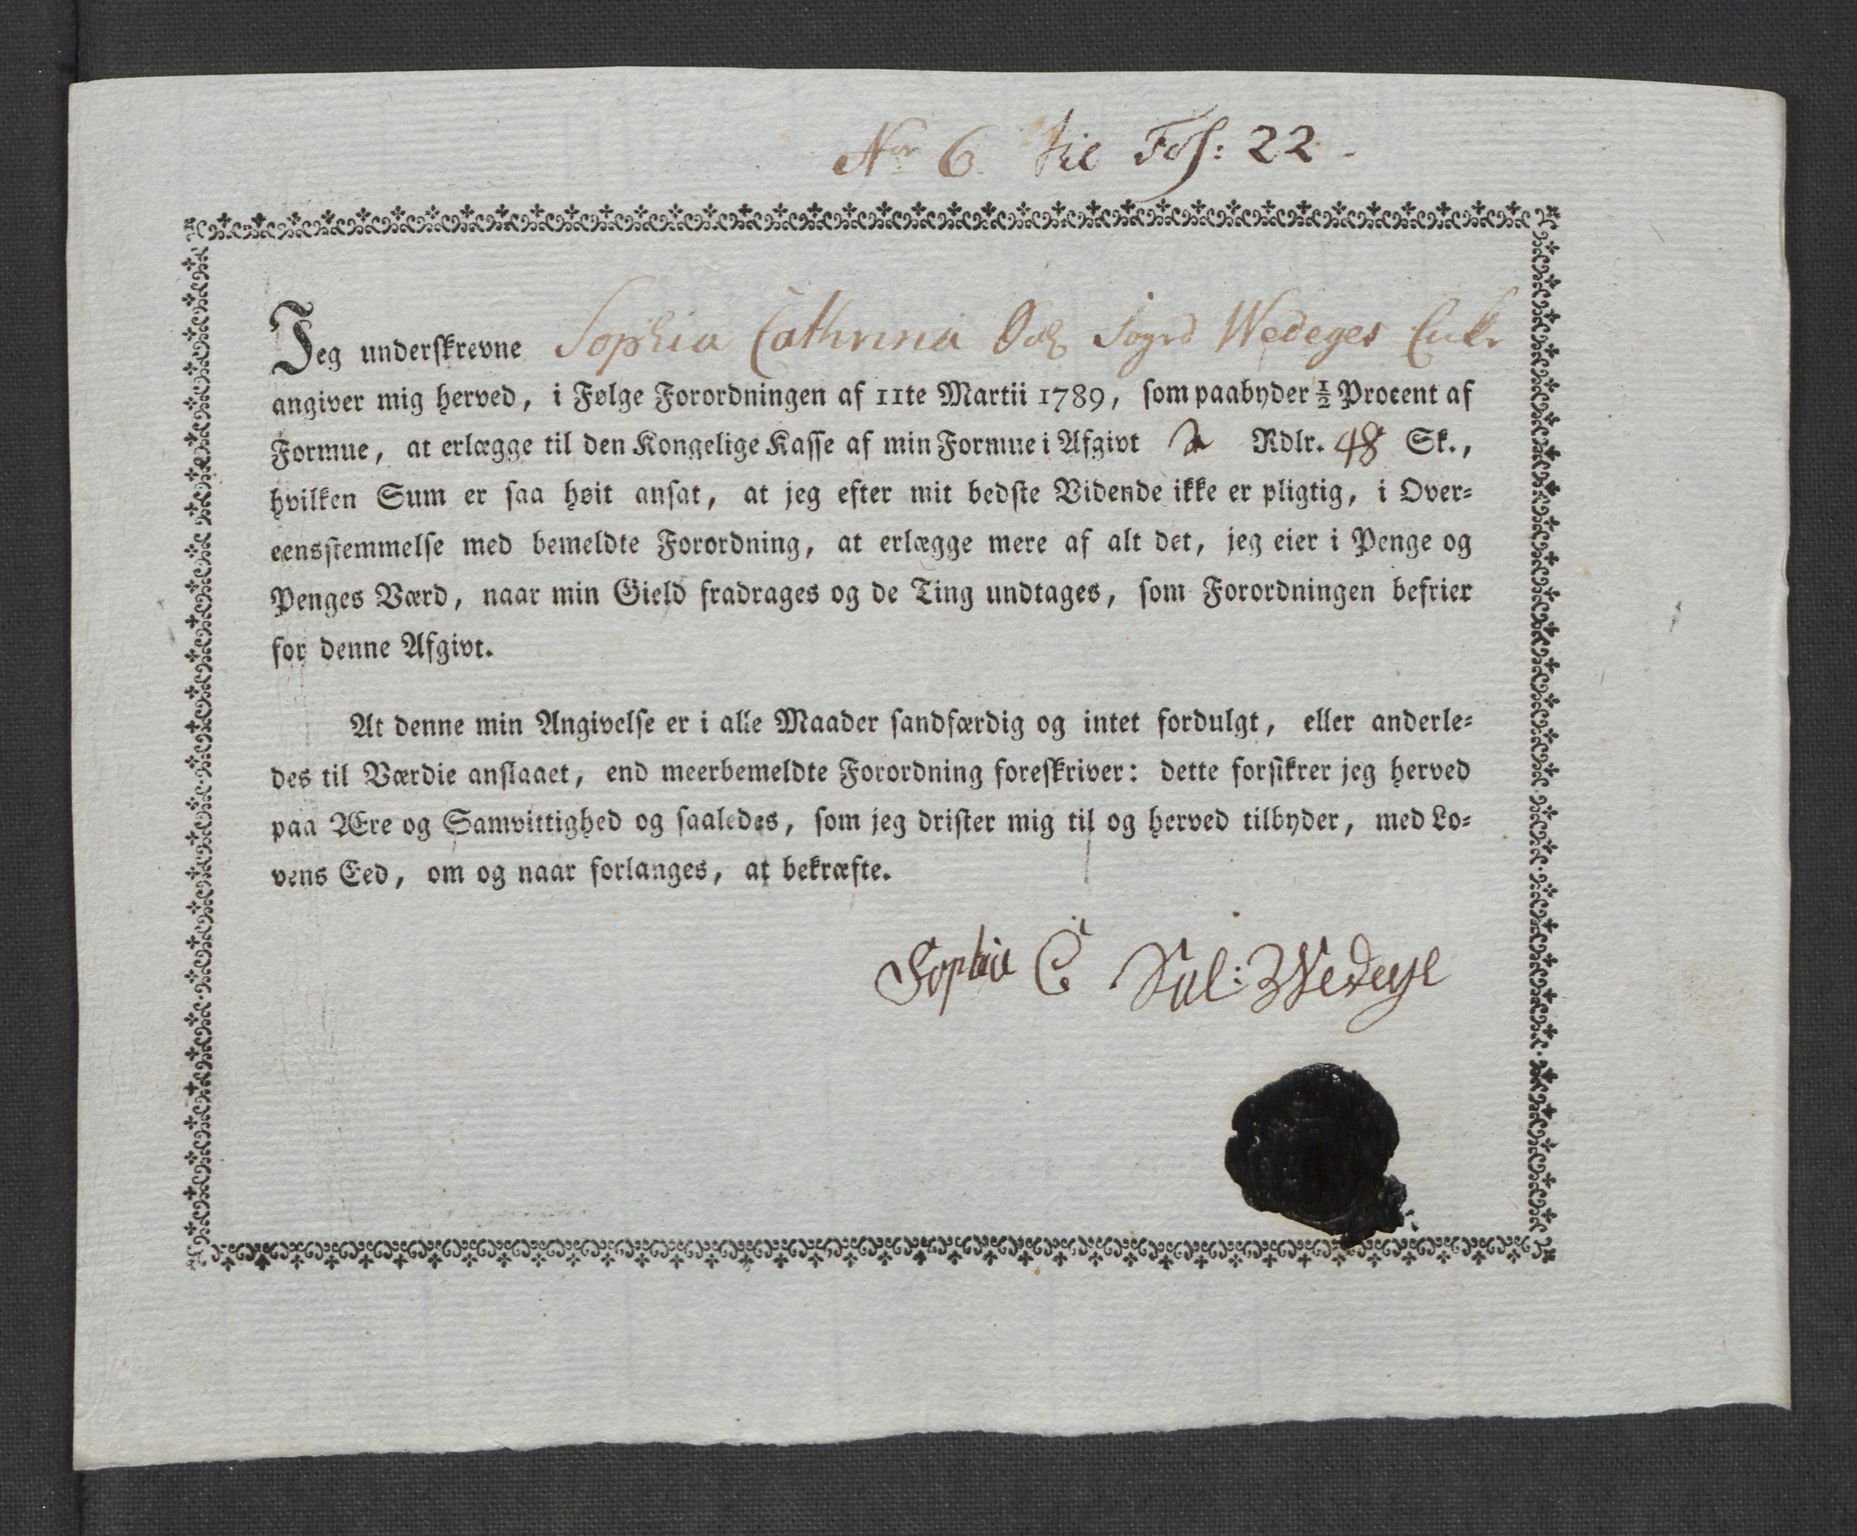 No 6. til Fol: 22.
Jeg underskrevne Sophia Cathrina Sal Wedeges Enke
angiver mig herved, i Følge Forordningen af 11te Martii 1789, som paabyder ½ Procent af
Formue, at erlægge til den Kongelige Kasse af min Formue i Afgivt 2 Rdlr. 48 Sk.,
hvilken Sum er saa høit ansat, at jeg efter mit bedste Vidende ikke er pligtig, i Over-
eensstemmelse med bemeldte Forordning, at erlægge mere af alt det, jeg eier i Penge og
Penges Værd, naar min Gield fradrages og de Ting undtages, som Forordningen befrier
for denne Afgivt.
At denne min Angivelse er i alle Maader sandfærdig og intet fordulgt, eller anderle-
des til Værdie anslaaet, end meerbemeldte Forordning foreskriver: dette forsikrer jeg herved
paa Ære og Samvittighed og saaledes, som jeg drister mig til og herved tilbyder, med Lo-
vens Eed, om og naar forlanges, at bekræfte.
Sophia C Sal: Wedege